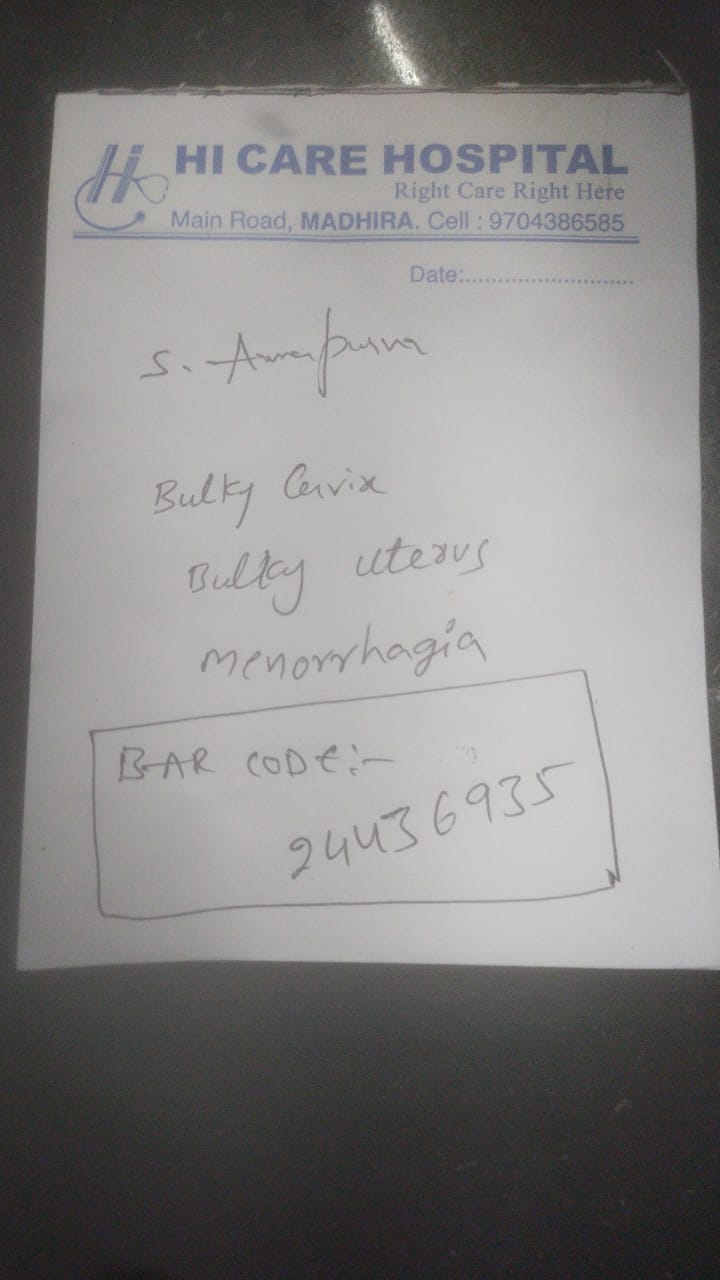 Hi HI CARE HOSPITAL
Right Care Right Here
Main Road, MADHIRA. Cell : 9704386585
Date:............................
S. Annapurna
Bulky Cervix
Bulky uterus
menorrhagia
BAR CODE:-
24436935